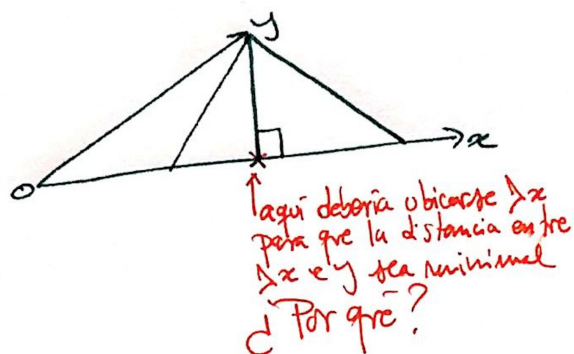 y
O
x
aquí debería ubicarse λx
para que la distancia entre
λx e y sea minimal
¿Por qué?